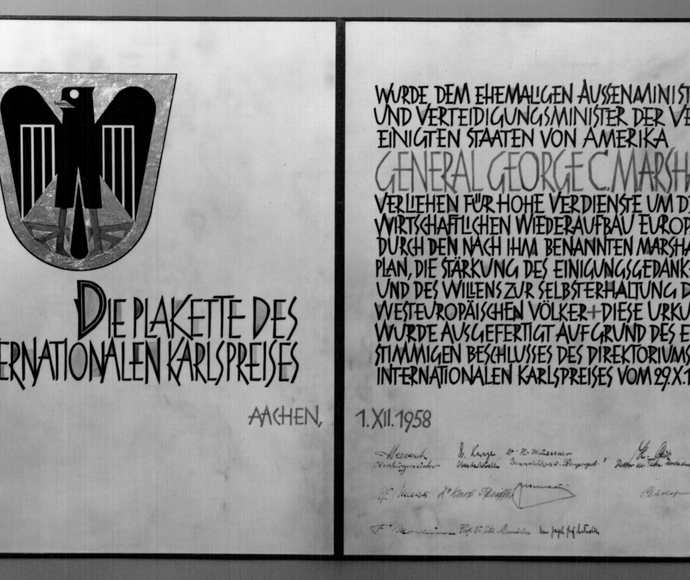 DIE PLAKETTE DES
ERNATIONALEN KARLSPREISES
AACHEN, 1.XII.1958
WURDE DEM EHEMALIGEN AUSSENMINIST
UND VERTEIDIGUNGSMINISTER DER VE
EINIGTEN STAATEN VON AMERIKA
GENERAL GEORGE C. MARSHA
VERLIEHEN FÜR HOHE VERDIENSTE UM D
WIRTSCHAFTLICHEN WIEDERAUFBAU EUROP
DURCH DEN NACH IHM BENANNTEN MARSHA
PLAN, DIE STÄRKUNG DES EINIGUNGSGEDANK
UND DES WILLENS ZUR SELBSTERHALTUNG D
WESTEUROPÄISCHEN VÖLKER + DIESE URKU
WURDE AUSGEFERTIGT AUF GRUND DES E
STIMMIGEN BESCHLUSSES DES DIREKTORIUMS
INTERNATIONALEN KARLSPREISES VOM 29.X.1
Oberbürgermeister